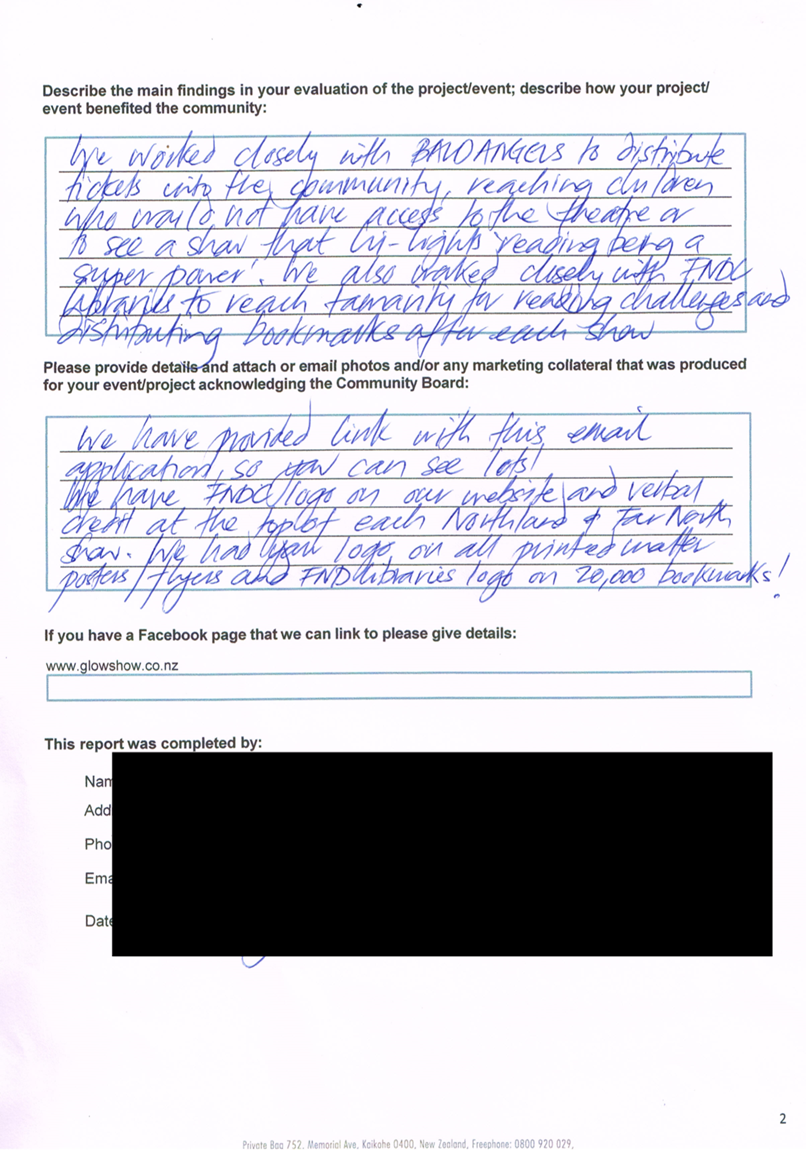 Describe the main findings in your evaluation of the project/event; describe how your project/
event benefited the community:
We worked closely with BALD ANGELS to distribute
tickets into the community, reaching children
who would not have access to the theatre or
to see a show that hi-lights 'reading being a
super power'. We also worked closely with FNDC
Libraries to reach tamariki for reading challenges and
distributing bookmarks after each show
Please provide details and attach or email photos and/or any marketing collateral that was produced
for your event/project acknowledging the Community Board:
We have provided link with this email
application, so you can see lots!
We have FNDC logo on our website and verbal
credit at the top of each Northland & Far North
show. We had your logo on all printed matter
posters/flyers and FND libraries logo on 20,000 bookmarks!
If you have a Facebook page that we can link to please give details:
www.glowshow.co.nz
This report was completed by:
Nam
Add
Pho
Ema
Date
2
Private Bag 752, Memorial Ave, Kaikohe 0400, New Zealand, Freephone: 0800 920 029,